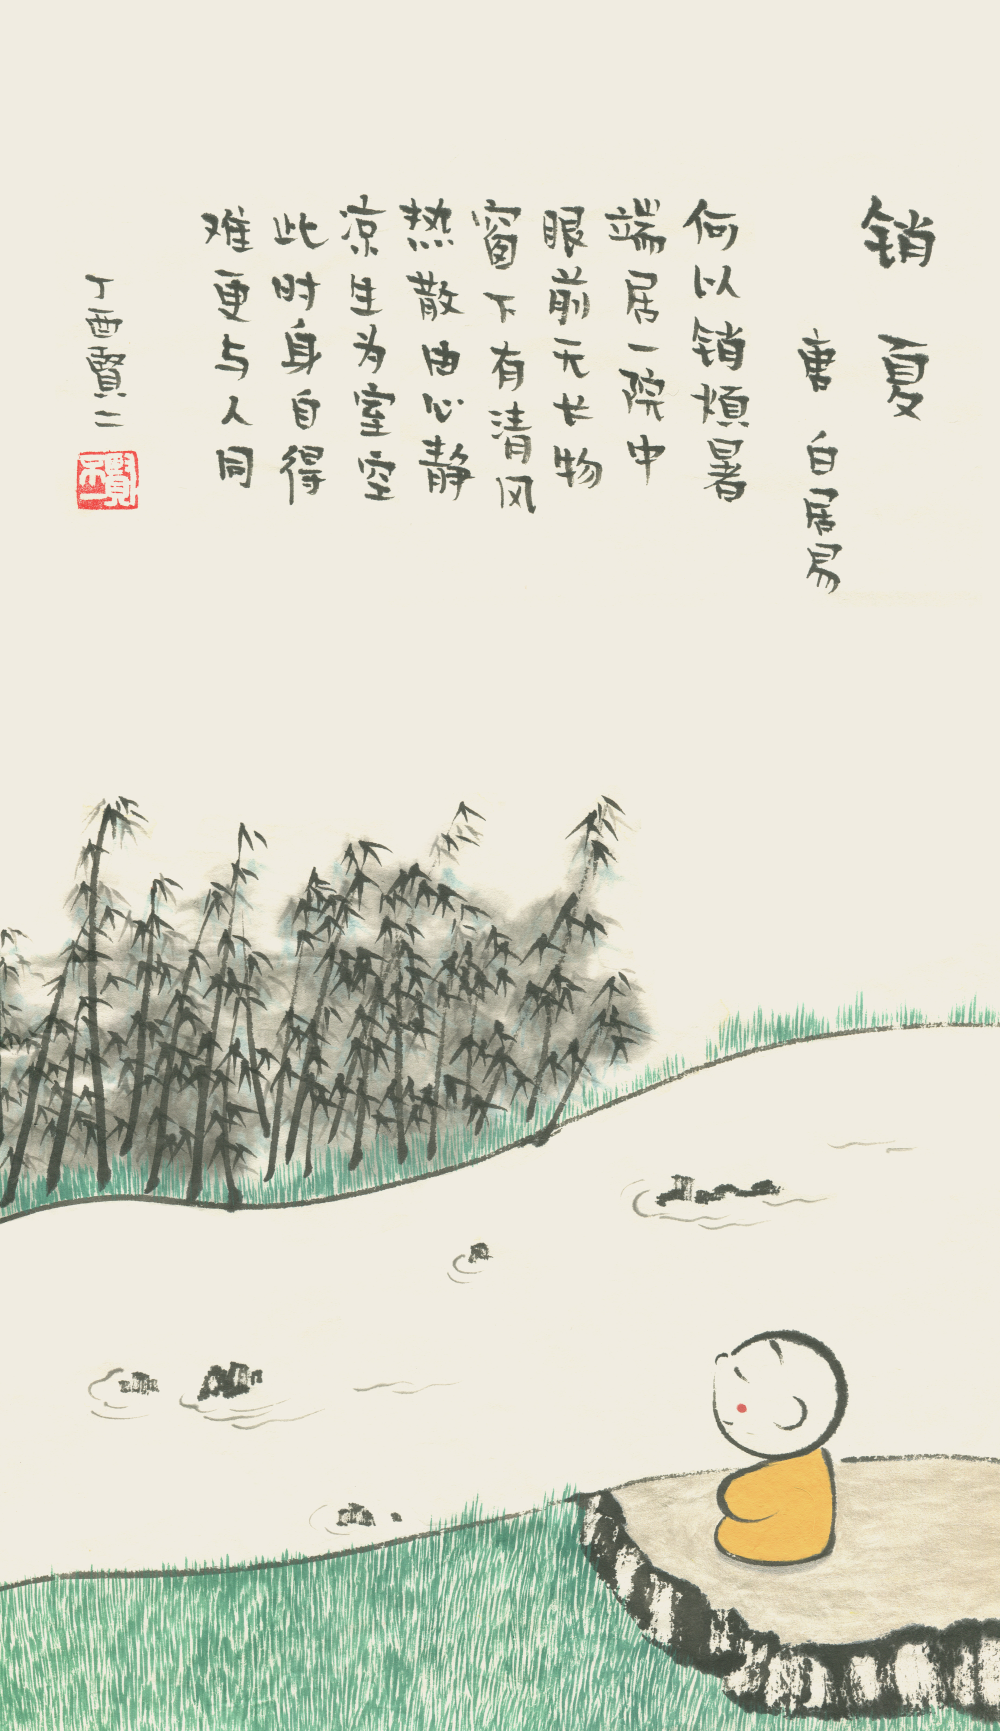 销夏
唐 白居易
何以销烦暑
端居一院中
眼前无长物
窗下有清风
热散由心静
凉生为室空
此时身自得
难更与人同
丁酉賢二
賢二